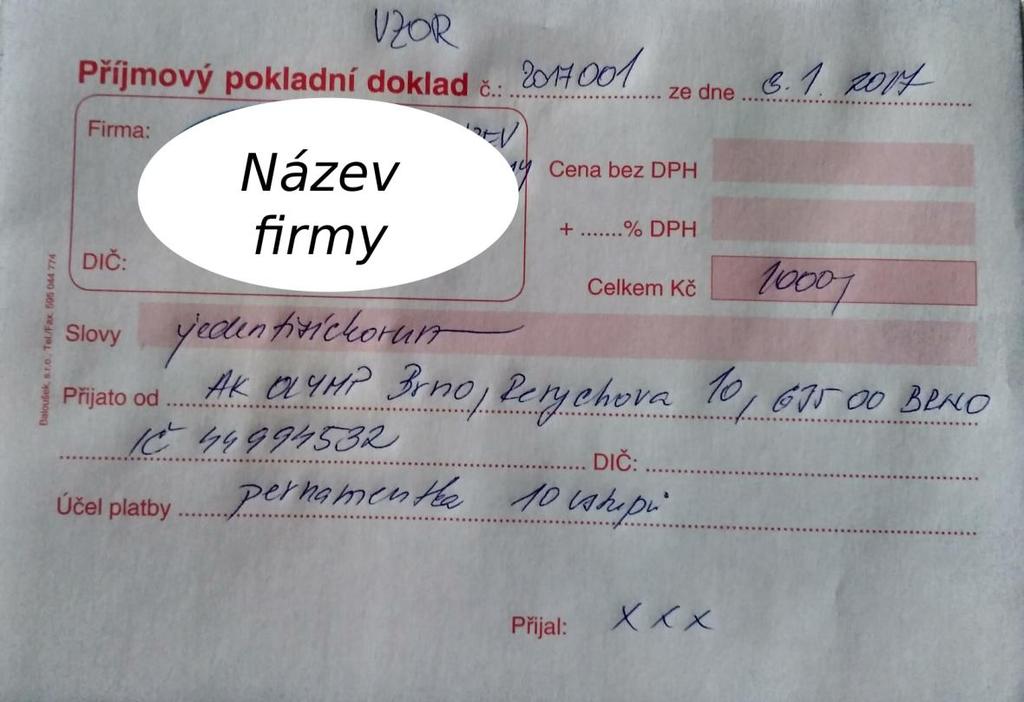 VZOR
Příjmový pokladní doklad č.: 2017001 ze dne 3.1.2017
Firma:
Název
firmy
DIČ:
Cena bez DPH
+ .......% DPH
Celkem Kč 1000,-
Slovy jedentisíckorun
Přijato od AK OLYMP Brno, Rerychova 10, 635 00 BRNO
IČ 44994532 DIČ:
Účel platby pernamentka 10 vstupů
Přijal: x x x
Baloušek, s.r.o., Tel./Fax: 595 044 774